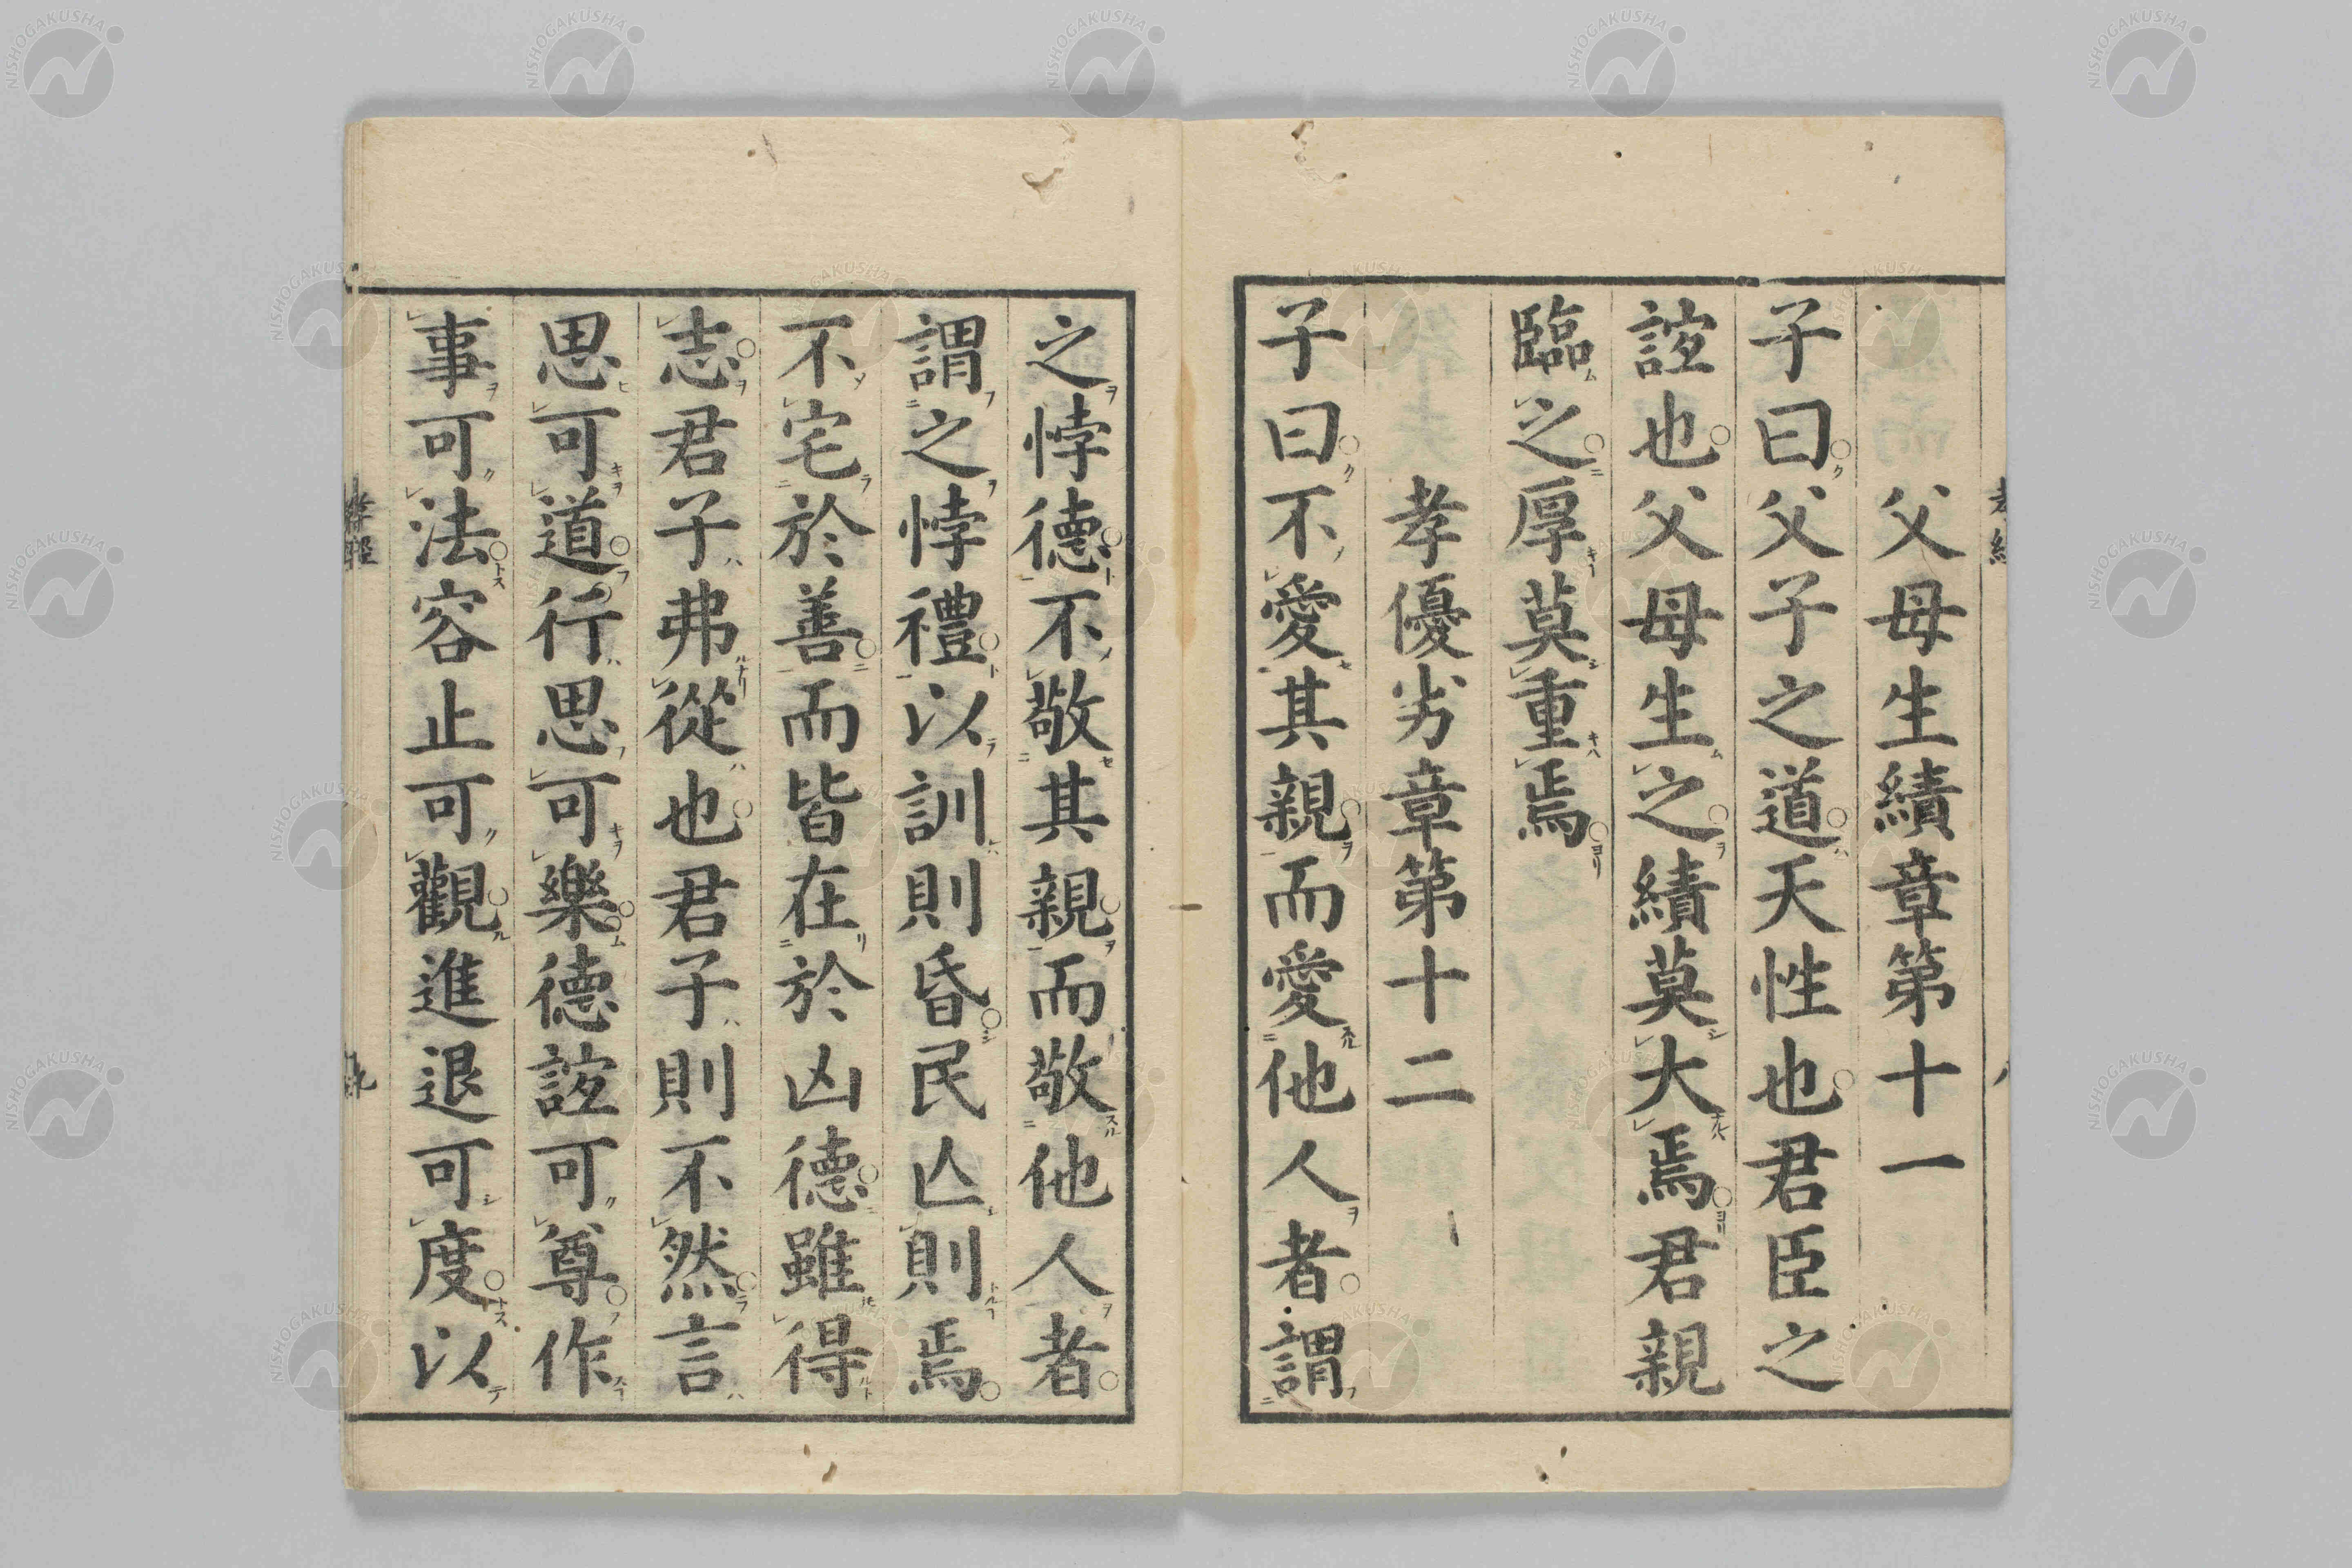 父母生績章第十一
子曰父子之道天性也君臣之
誼也父母生之績莫大焉君親
臨之厚莫重焉
孝優劣章第十二
子曰不愛其親而愛他人者謂
之悖德不敬其親而敬他人者
謂之悖禮以訓則昏民亾則焉
不宅於善而皆在於凶德雖得
志君子弗從也君子則不然言
思可道行思可樂德誼可尊作
事可法容止可觀進退可度以
孝經
九
NISHOGAKUSHA